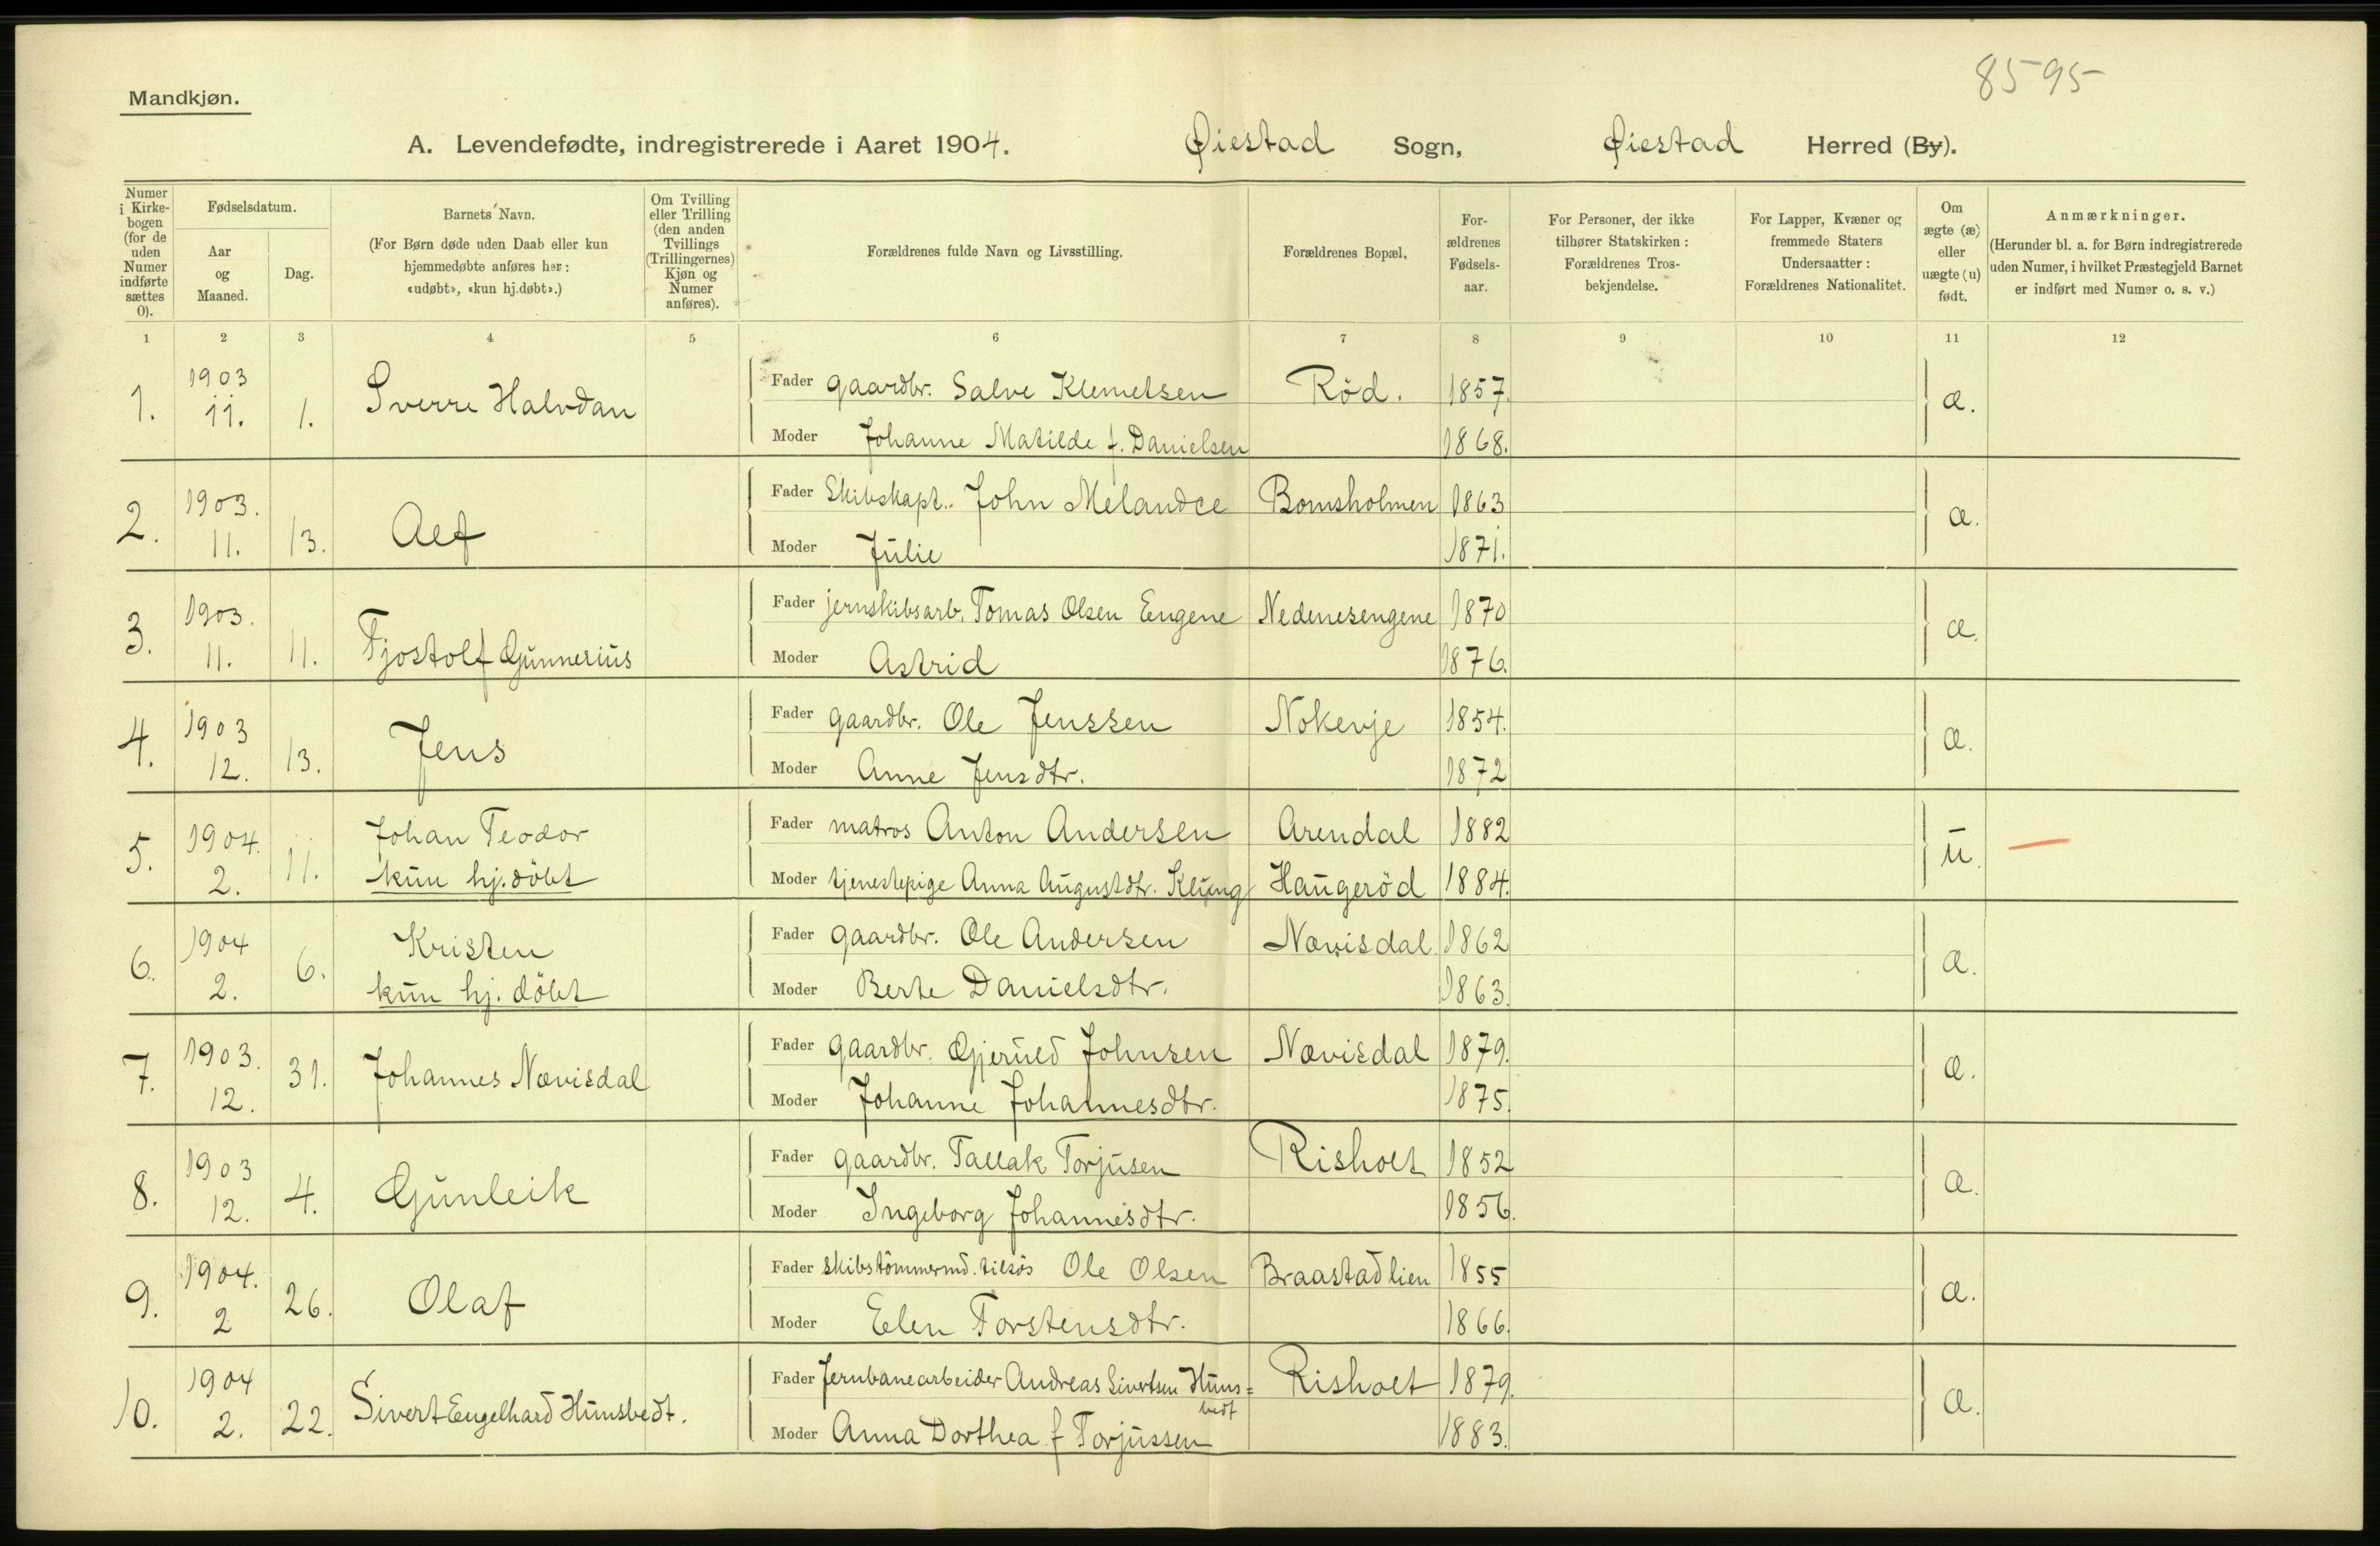 8595
Mandkjøn.
A. Levendefødte, indregistrerede i Aaret 1904. Øiestad Sogn, Øiestad Herred (By).
Numer i Kirkebogen (for de uden Numer indførte sættes 0).
Fødselsdatum.
Aar og Maaned.
Dag.
Barnets Navn.
(For Børn døde uden Daab eller kun hjemmedøbte anføres her: «udøbt», «kun hj.døbt».)
Om Tvilling eller Trilling (den anden Tvillings (Trillingernes) Kjøn og Numer anføres).
Forældrenes fulde Navn og Livsstilling.
Forældrenes Bopæl,
Forældrenes Fødselsaar.
For Personer, der ikke tilhører Statskirken: Forældrenes Trosbekjendelse.
For Lapper, Kvæner og fremmede Staters Undersaatter: Forældrenes Nationalitet.
Om ægte (æ) eller uægte (u) født.
Anmærkninger.
(Herunder bl. a. for Børn indregistrerede uden Numer, i hvilket Præstegjeld Barnet er indført med Numer o. s. v.)
1 2 3 4 5 6 7 8 9 10 11 12
1. 1903 11. 1. Sverre Halvdan Fader gaardbr. Salve Klemetsen Rød. 1857. æ.
Moder Johanne Matilde f. Danielsen 1868.
2. 1903. 11. 13. Alf Fader Skibskapt. John Melandee Bomsholmen 1863 æ.
Moder Julie 1871.
3. 1903. 11. 11. Tjostolf Gunnerius Fader jernskibsarb. Tomas Olsen Engene Nedenesengene 1870 æ.
Moder Astrid 1876.
4. 1903 12. 13. Jens Fader gaardbr. Ole Jenssen Nokevje 1854. æ.
Moder Anne Jensdtr. 1872
5. 1904. 2. 11. Johan Teodor Fader matros Anton Andersen Arendal 1882 u.
kun hj.döbt Moder tjenestepige Anna Augustdtr. Klung Haugeröd 1884.
6. 1904 2. 6. Kristen Fader gaardbr. Ole Andersen Nævisdal 1862 æ.
kun hj. döbt Moder Berte Danielsdtr. 1863.
7. 1903. 12. 31. Johannes Nævisdal Fader gaardbr. Gjeruld Johnsen Nævisdal 1879. æ.
Moder Johanne Johannesdtr. 1875.
8. 1903 12. 4. Gunleik Fader gaardbr. Tallak Torjusen Risholt 1852 æ.
Moder Ingeborg Johannesdtr. 1856.
9. 1904. 2 26. Olaf Fader skibstömmermd. tilsös Ole Olsen Braastadlien 1855 æ.
Moder Elen Torstensdtr. 1866.
10. 1904 2. 22. Sivert Engelhard Hunsbedt. Fader Jernbanearbeider Andreas Sivertsen Huns= Risholt 1879. æ.
bedt
Moder Anna Dorthea f Torjussen 1883.